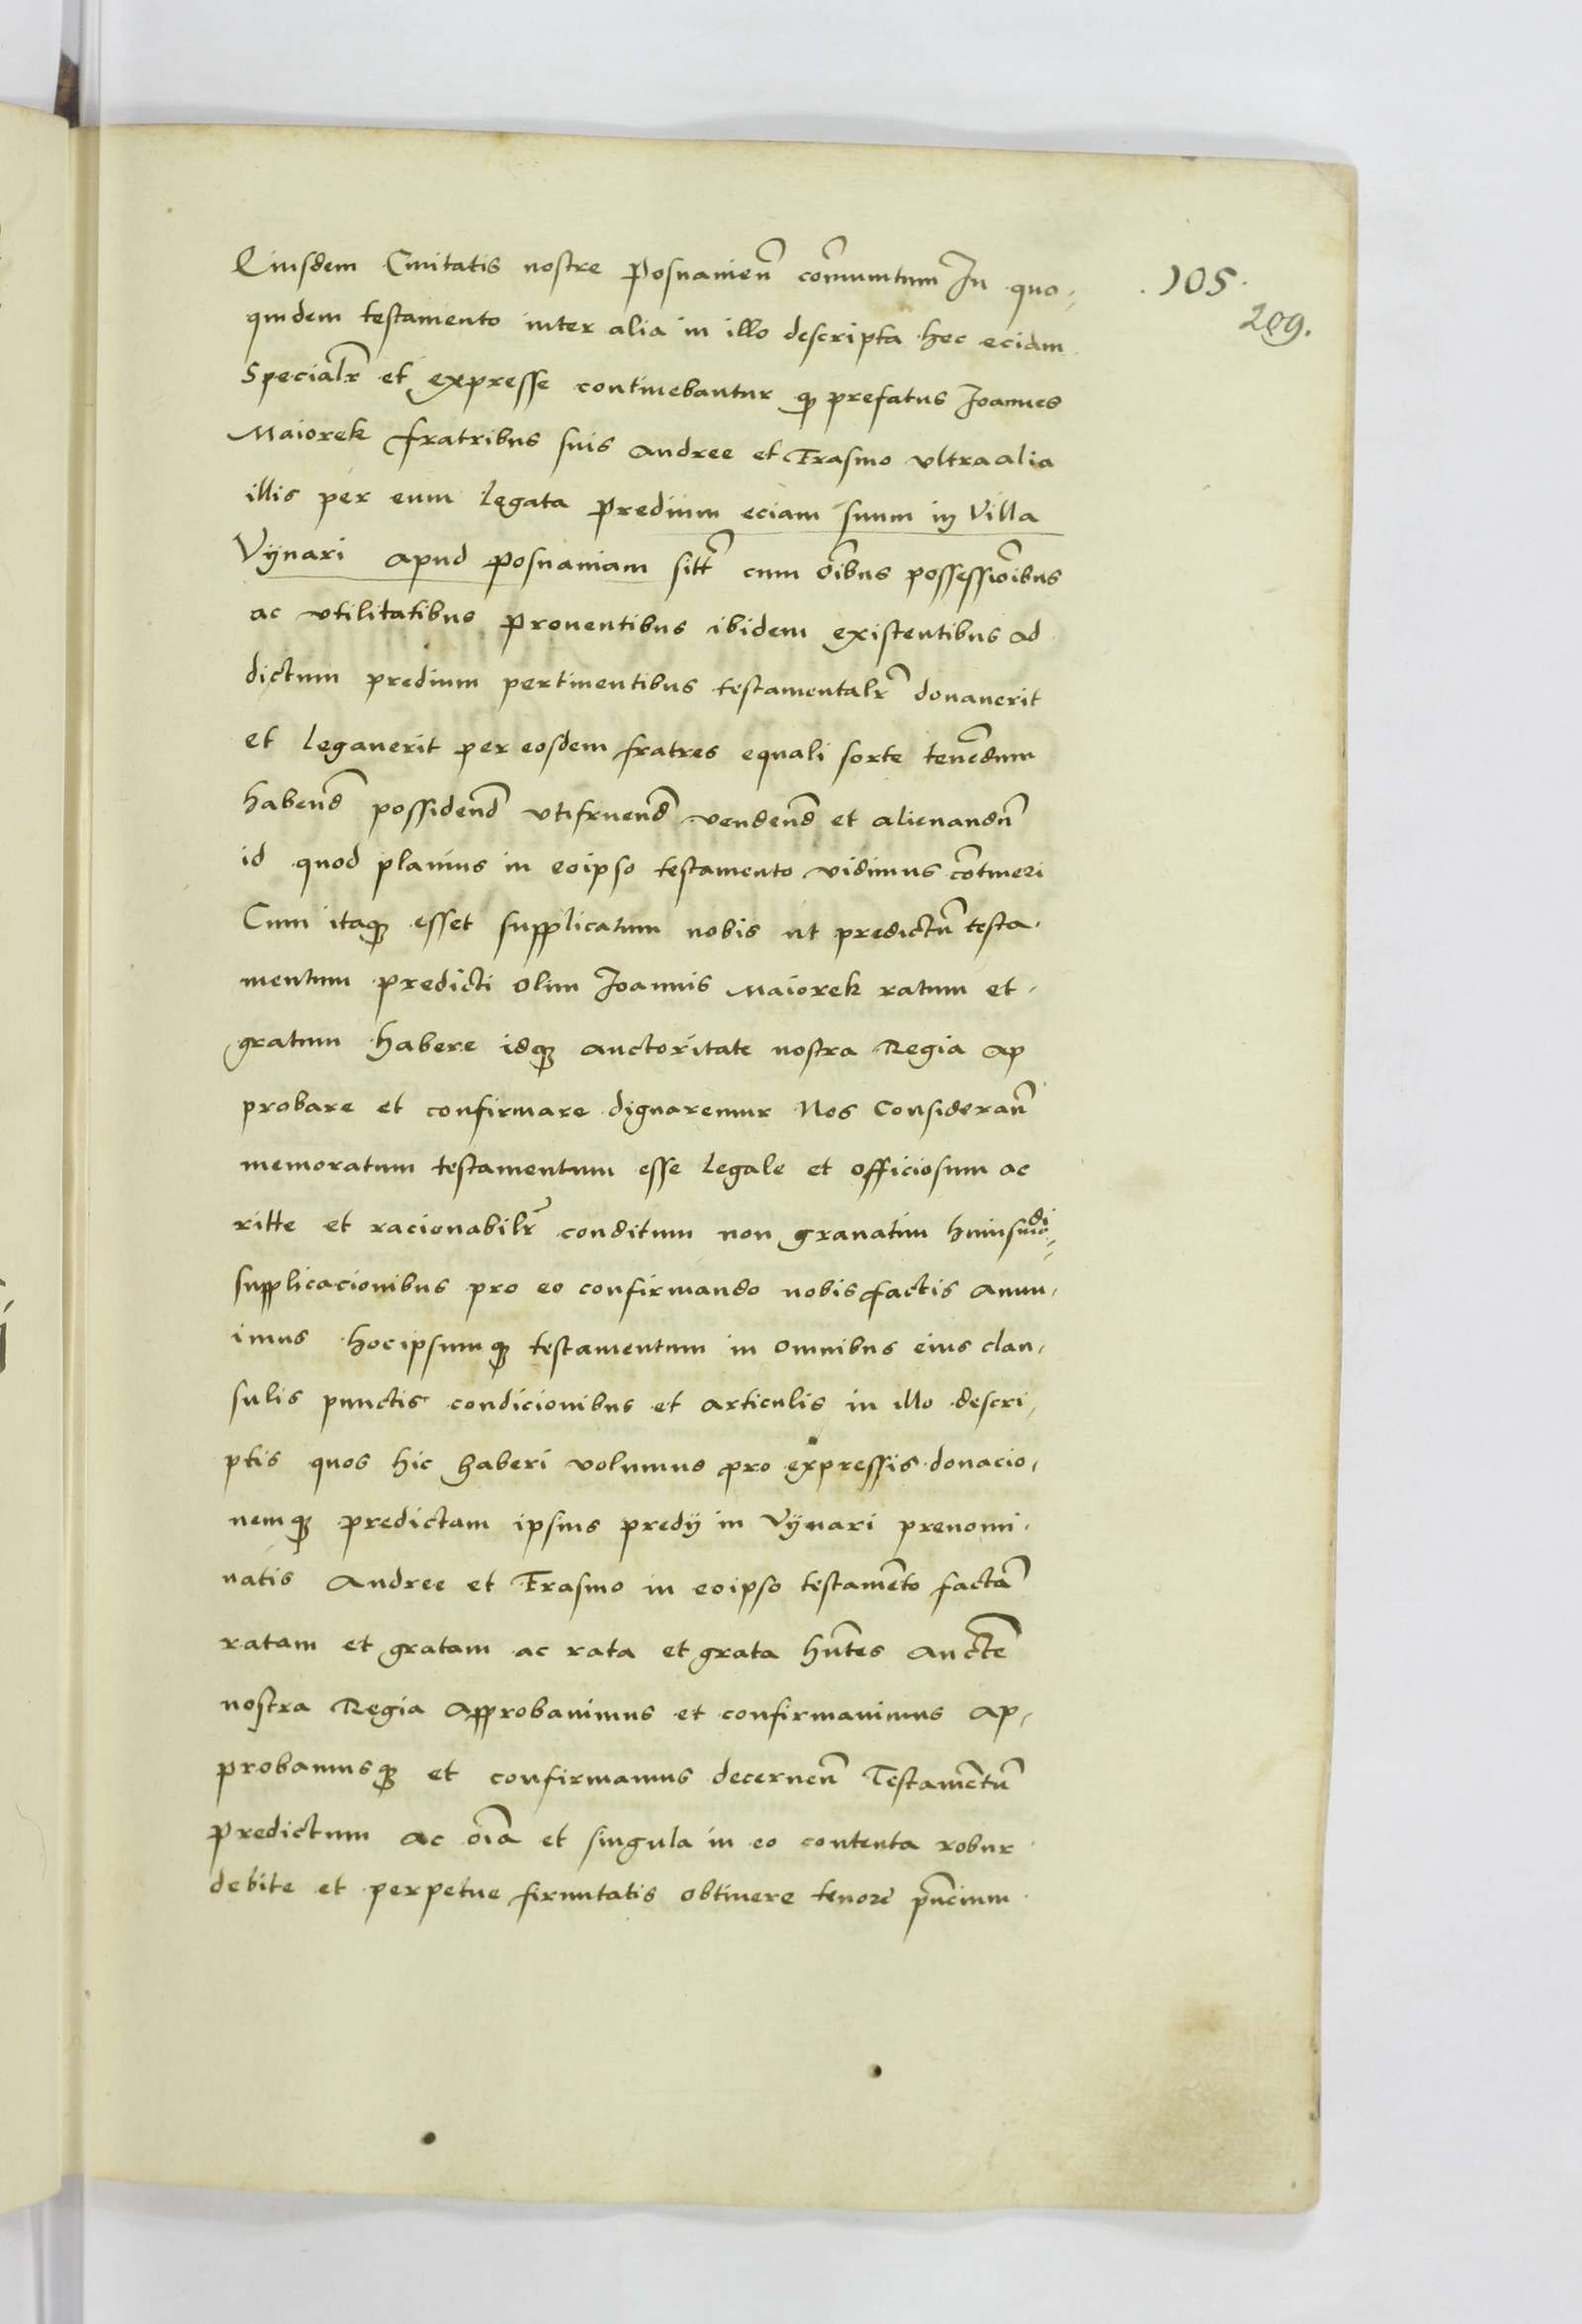 Eiusdem Civitatis nostre Posnanien̄ com̄unitum In quo=
.105.
209.
quidem testamento inter alia in illo descripta hec eciam
Specialr̄ et expresse continebantur qꝫ prefatus Joannes
Maiorek fratribus suis Andree et Erasmo ultra alia
illis per eum legata predium eciam suum in Villa
Vÿnari apud Posnaniam sitt̄ cum oībus possessioībus
ac utilitatibus proventibus ibidem existentibus ad
dictum predium pertinentibus testamentalr̄ donaverit
et legaverit per eosdem fratres equali sorte tenēdum
habend̄ possidend̄ utifruend̄ vendend̄ et alienandū
id quod planius in eoipso testamento vidimus cōtineri
Cum itaqꝫ esset supplicatum nobis ut predictū testa-
mentum predicti olim Joannis Maiorek ratum et
gratum habere idqꝫ auctoritate nostra Regia ap
probare et confirmare dignaremur Nos Consideran̄
memoratum testamentum esse legale et officiosum ac
ritte et racionabilr̄ conditum non gravatim huiusmodi=
supplicacionibus pro eo confirmando nobis factis annu-
imus hocipsumqꝫ testamentum in omnibus eius clau-
sulis punctis condicionibus et articulis in illo descri-
ptis quos hic haberi volumus pro expressis donacio-
nemqꝫ predictam ipsius predÿ in Vÿnari prenomi-
natis Andree et Erasmo in eoipso testamēto factā
ratam et gratam ac rata et grata hn̄tes Auctē
nostra Regia Approbavimus et confirmavimus ap-
probamusqꝫ et confirmamus decernen̄ Testamētū
predictum ac oīa et singula in eo contenta robur
debite et perpetue firmitatis obtinere tenore pn̄cium